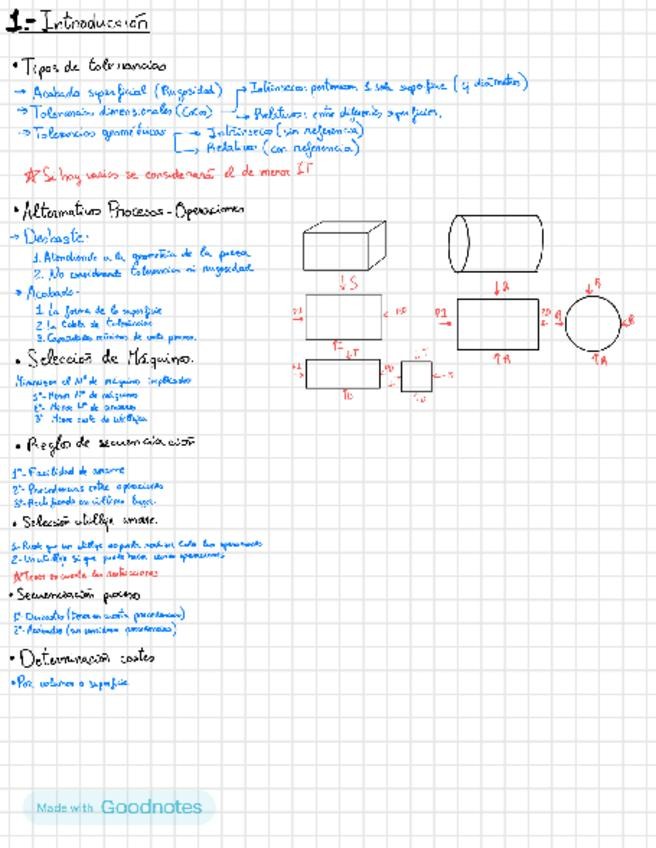 1.- Introducción
• Tipos de tolerancias
→ Acabado superficial (Rugosidad)
→ Tolerancias dimensionales (Cotas)
→ Intrínsecas: pertenecen 1 sola superficie (y diámetros)
→ Relativas: entre diferentes superficies.
→ Tolerancias geométricas
→ Intrínseca (sin referencia)
→ Relativa (con referencia)
☆ Si hay varios se considerará el de menor IT
• Alternativas Procesos-Operaciones
→ Desbaste:
1. Atendiendo a la geometría de la pieza
2. No considerando tolerancias ni rugosidad
→ Acabado:
1. La forma de la superficie
2. La tabla de tolerancias
3. Capacidades mínimas de cada proceso.
• Selección de Máquinas.
Minimizar el Nº de máquinas implicadas
1º- Menor Nº de máquinas
2º- Menor Nº de amarres
3º Menor coste de utillaje
• Reglas de secuenciación
1º- Facilidad de amarre
2º- Precedencias entre operaciones
3º- Rectificado en último lugar.
• Selección utillaje amarre.
2- Un utillaje si que puede hacer varias operaciones
☆ Tener en cuenta las restricciones
• Secuenciación proceso
1º Desbastes (tener en cuenta precedencias)
2º- Acabados (sin considerar precedencias)
• Determinación costes
• Por volumen o superficie
S
R
R
R
R
R
R
Made with Goodnotes